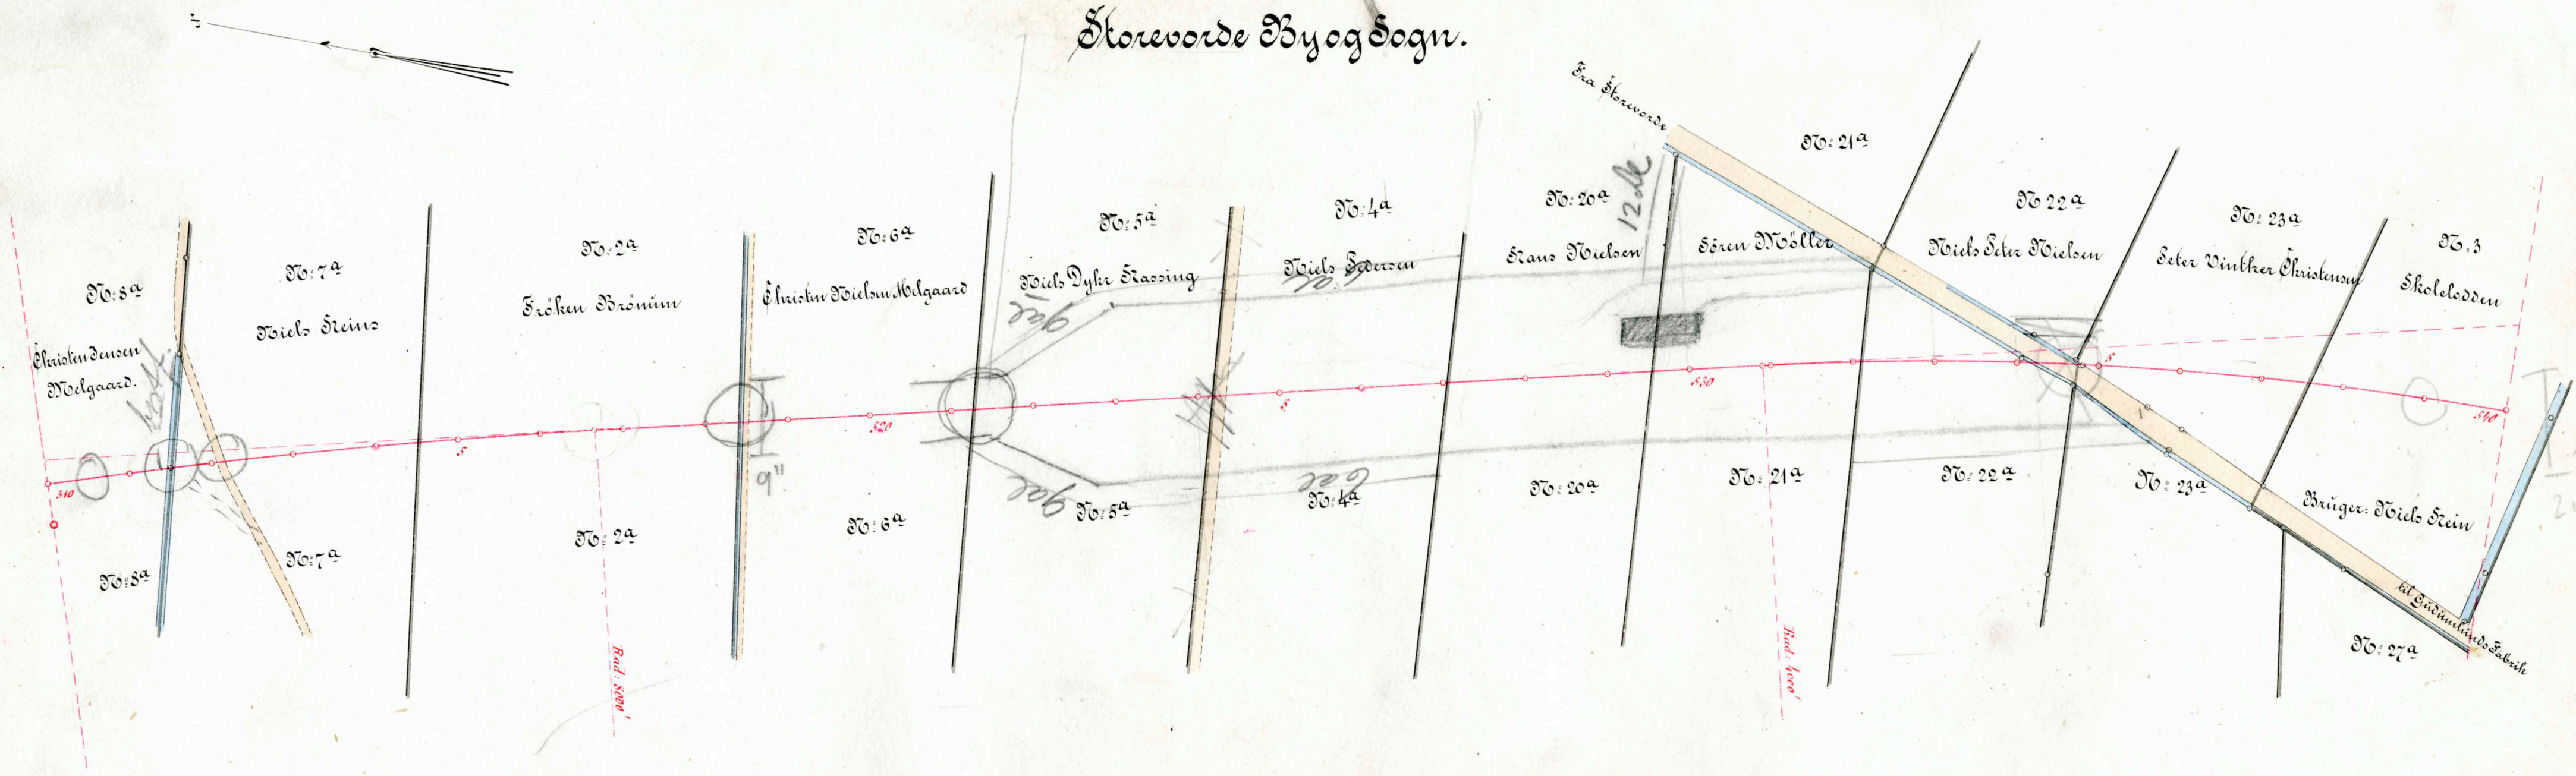 Storevorde By og Sogn.
Fra Storevorde
N: 8a
Christen Jensen
Melgaard.
N: 7a
Niels Heins
N: 2a
Fröken Brönum
N: 6a
Christen Nielsen Melgaard
N: 5a
Niels Dyhr Kassing
N: 4a
Niels Pedersen
N: 20a
Hans Nielsen
12de
N: 21a
Sören Möller
N: 22a
Niels Peter Nielsen
N: 23a
Peter Vinther Christensen
N: 3
Skolelodden
510
5
520
5
530
5
540
9"
N: 8a
N: 7a
N: 2a
N: 6a
N: 5a
N: 4a
N: 20a
N: 21a
N: 22a
N: 23a
Bruger: Niels Hein
til Gudumlunds Fabrik
N: 27a
Rad: 8000'
Rad: 4000'